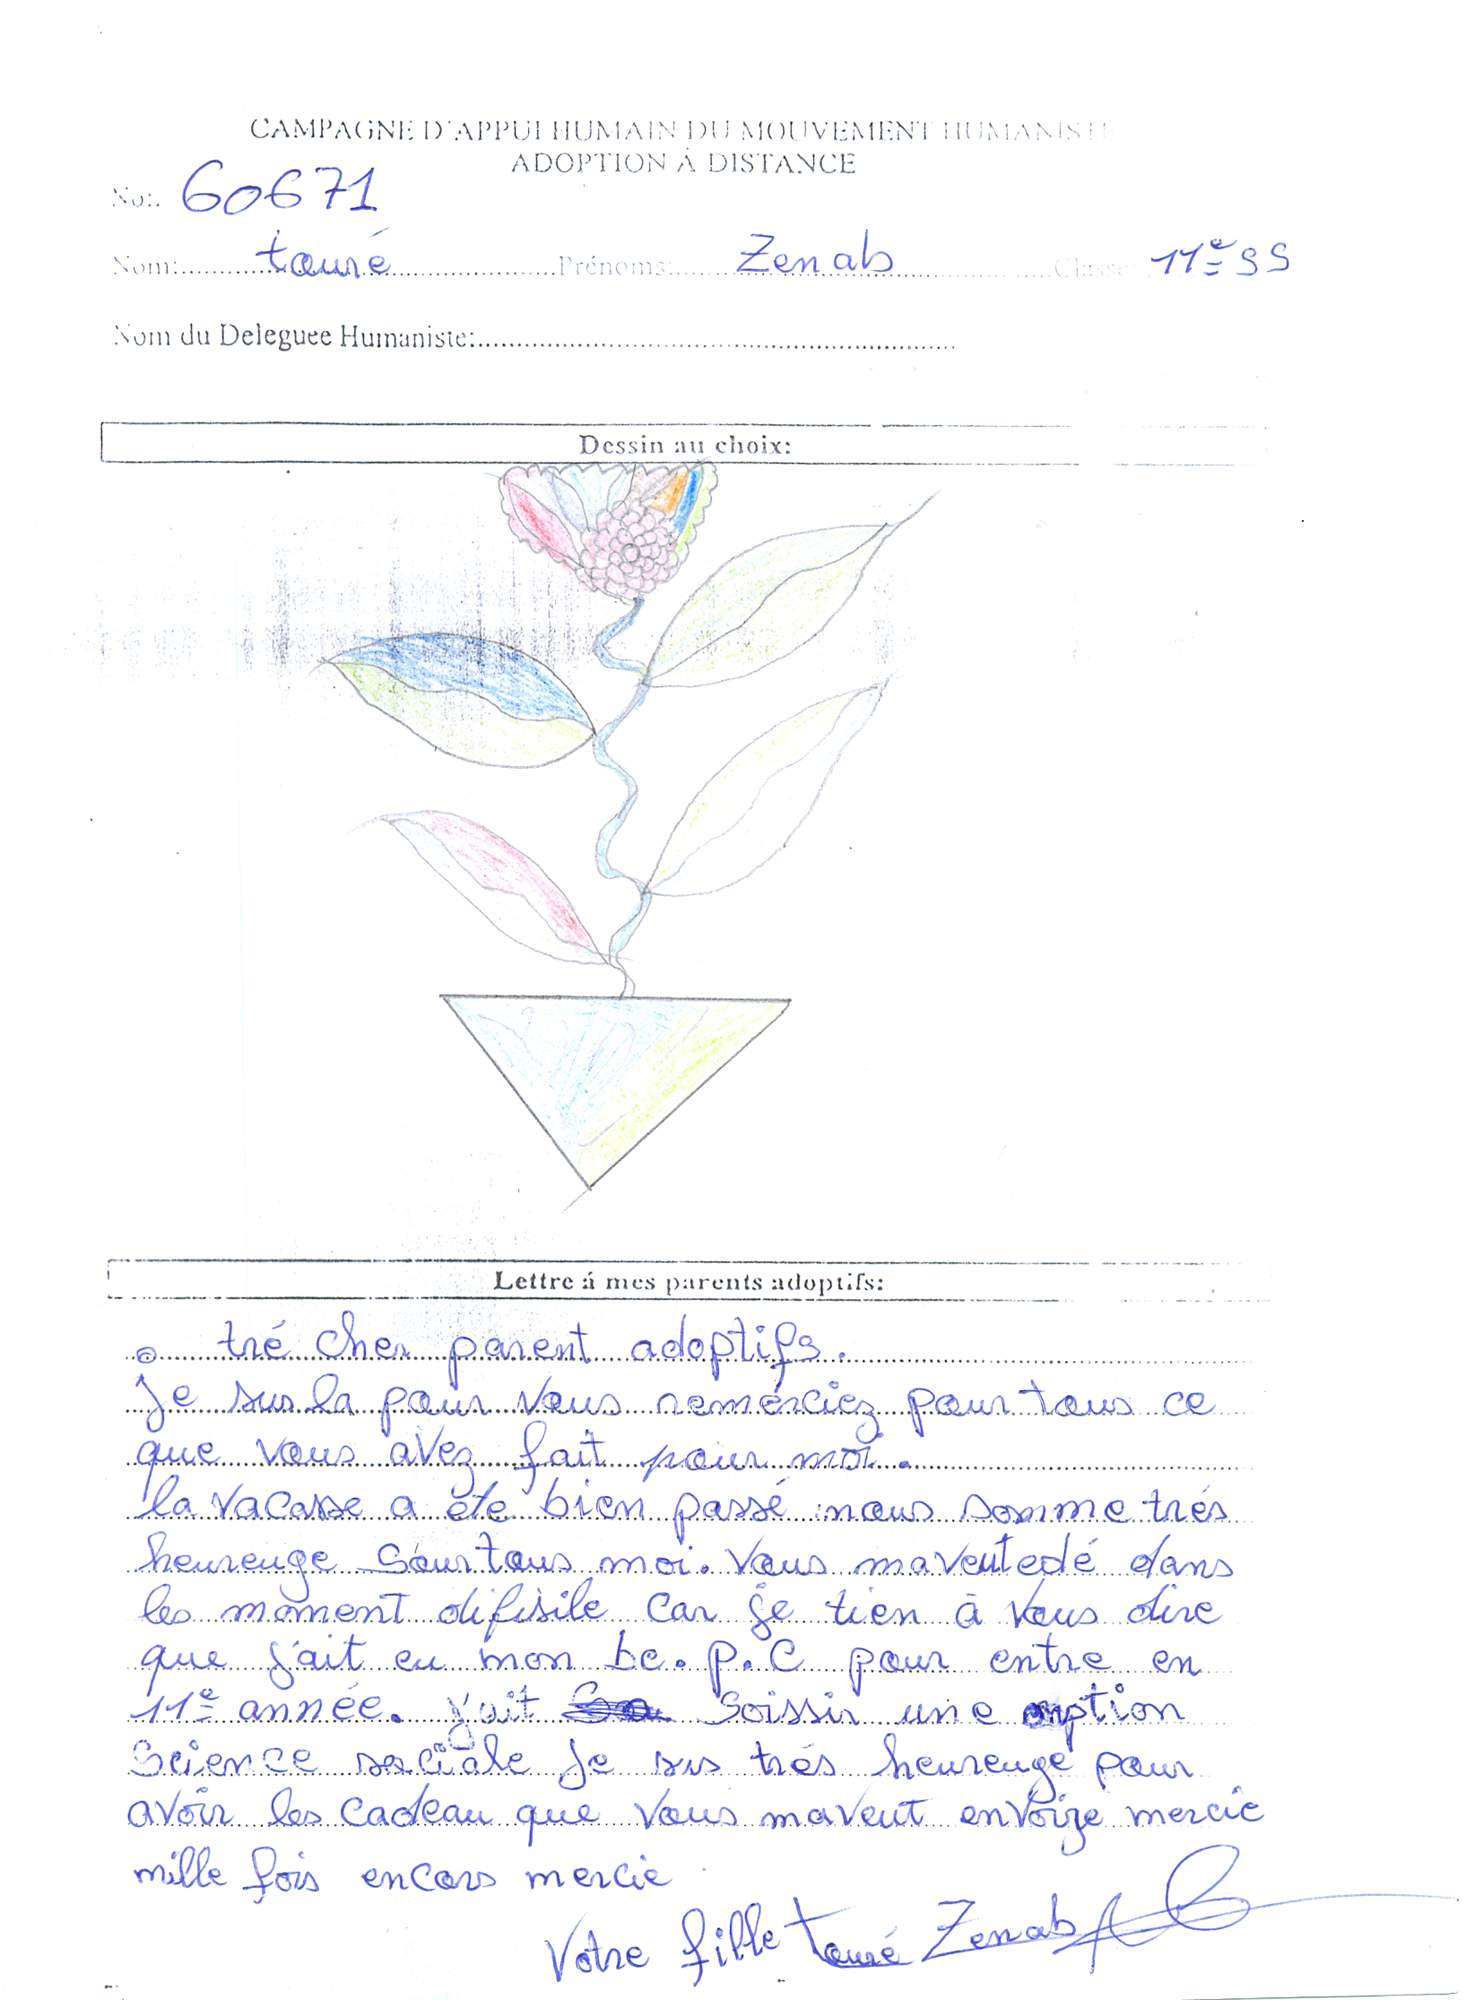 CAMPAGNE D'APPUI HUMAIN DU MOUVEMENT HUMANISTE
ADOPTION Á DISTANCE
No:. 60671
Nom: touré Prénoms: Zenab Classe 11e SS
Nom du Deleguee Humaniste:
Dessin au choix:
Lettre á mes parents adoptifs:
tré cher parent adoptifs.
Je sus la pour vous remérciez pour tous ce
que vous avez fait pour moi.
la vacasse a éte bien passé nous somme trés
heureuge sourtous moi. Vous maveut edé dans
les moment difisile car je tien à vous dire
que j'ait eu mon be.p.c pour entre en
11e année. j'ait soissir une option
Science sociale Je sus trés heureuge pour
avoir les cadeau que vous maveut envoize mercie
mille fois encors mercie
Votre fille touré Zenab